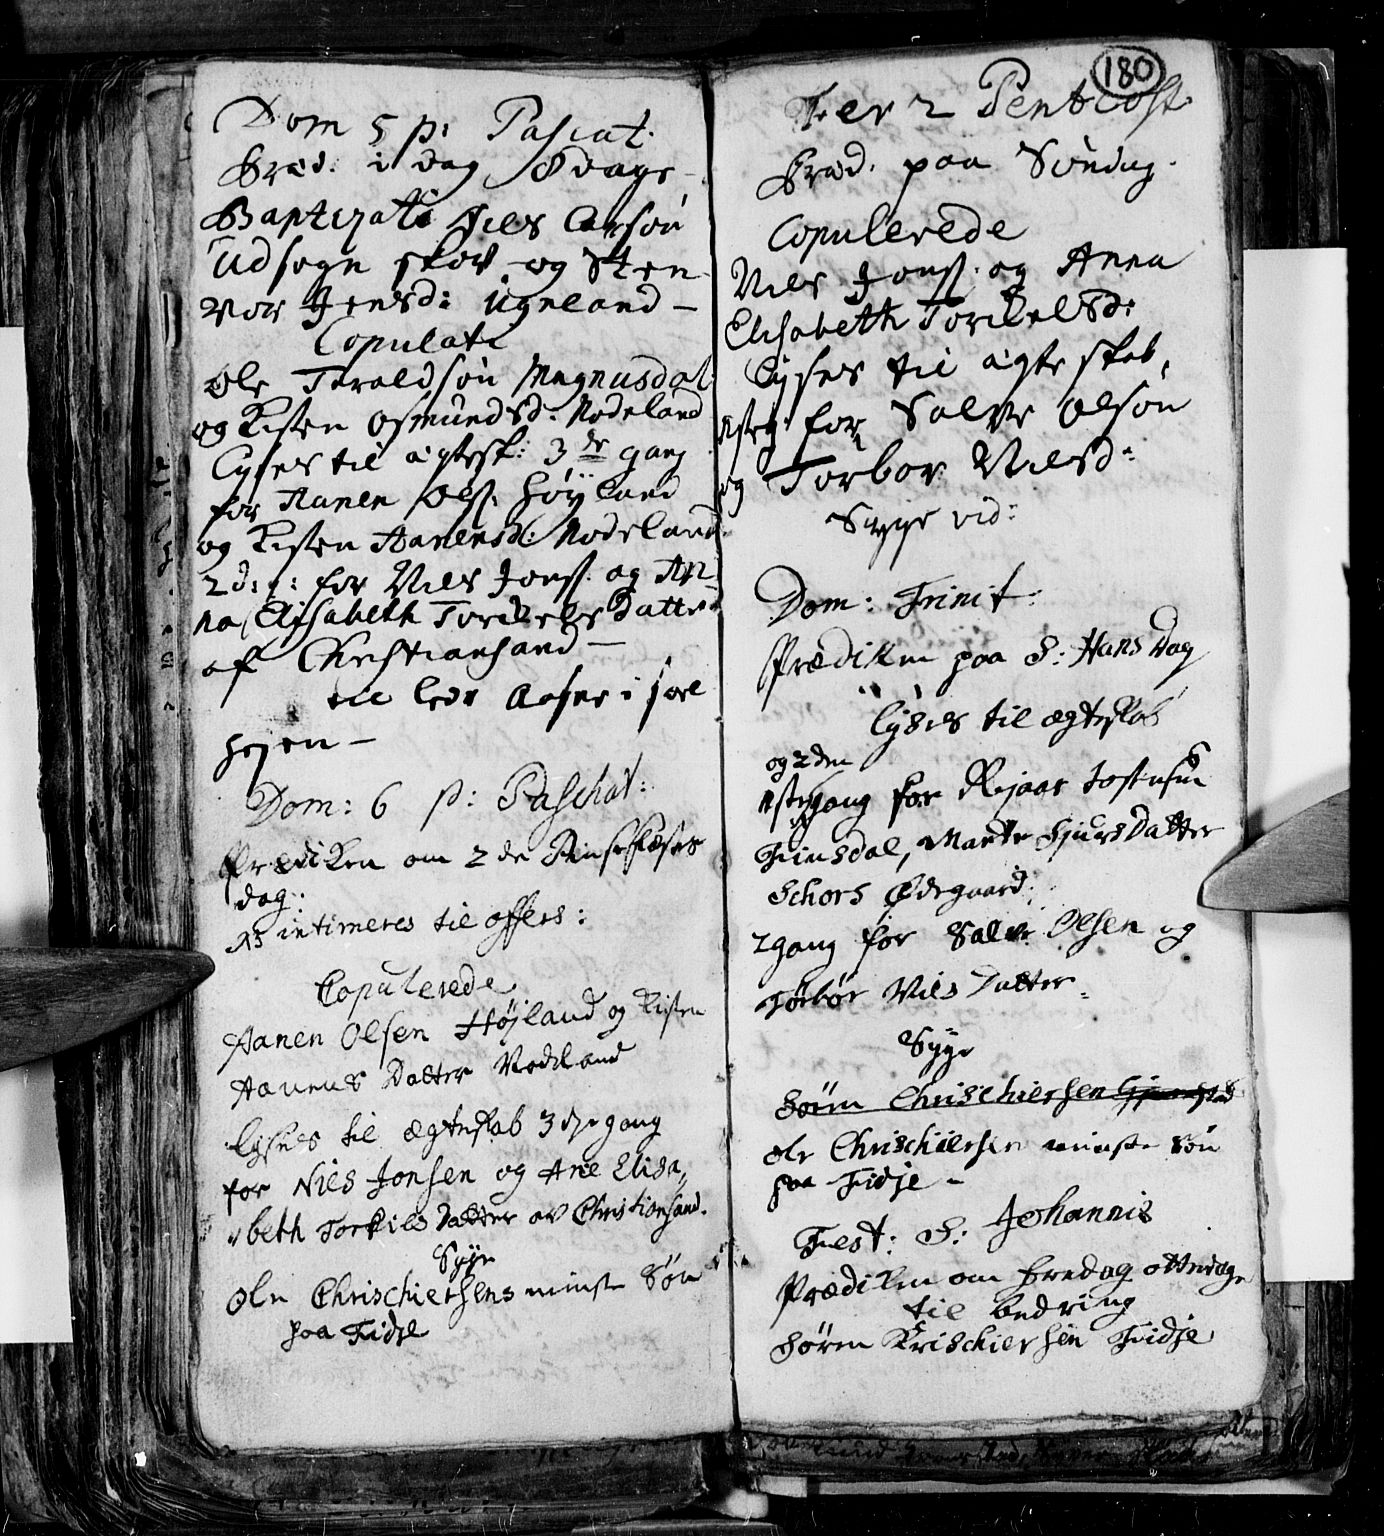 Dom 5 p: Pascat:
Præd: i dag 8 dage
Baptizati Niels Carsön
Udsogn skov og Sten
vor Jensd: Ugeland —
Copulati
Ole Taraldsön Magnusdal
og Kisten Osmundsd: Nodeland
lyses til ægtesk: 3de gang
for Aanen Ols: Höyland
og Kisten Aanensd: Nodeland
2d: g: for Niels Jons: og An
na Elisabeth Torkels datter
af Christiansand —
til
—
Dom: 6 p: Paschat:
Prædiken om 2de Pinsefæstes
dag:
NB intimeres til offers:
Copulerede
Aanen Olsen Højland og Kisten
Aanens Datter Nodeland
lyses til ægteskab 3dje gang
for Niels Jonsen og Ane Elisa„
„beth Torkils Datter av Christiansand.
Syge
Ole Chrischiersens minste Sön
paa Fidje
180
Fer 2 Pentecost
Præd: paa Söndag.
Copulerede
Niels Jons: og Anna
Elisabeth Torkelsd:
lyses til ægteskab,
1ste g: for Salve Olsön
og Torbor Nielsd:
Syge vid:
Dom: Trinit:
Prædiken paa S: Hans Dag
lyses til ægteskab
og 2den
1ste gang for Rejaar Tostensen
Finsdal, Marte Sjurs Datter
Schors Ødegaard:
2 gang for Salve Olsen og
Torbor Niels Datter
Syge
Sören Chrischiersen
Ole Chrischiersen minste Sön
paa Fidje –
Fest: S: Johannis
Prædiken om Fredag ottedage
til bedring
Sören Krischiersen Fidje